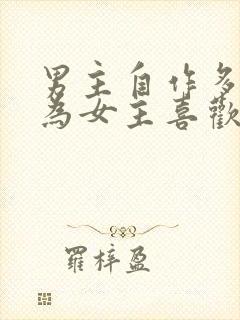 男主自作多
為女主喜歡
羅梓盈